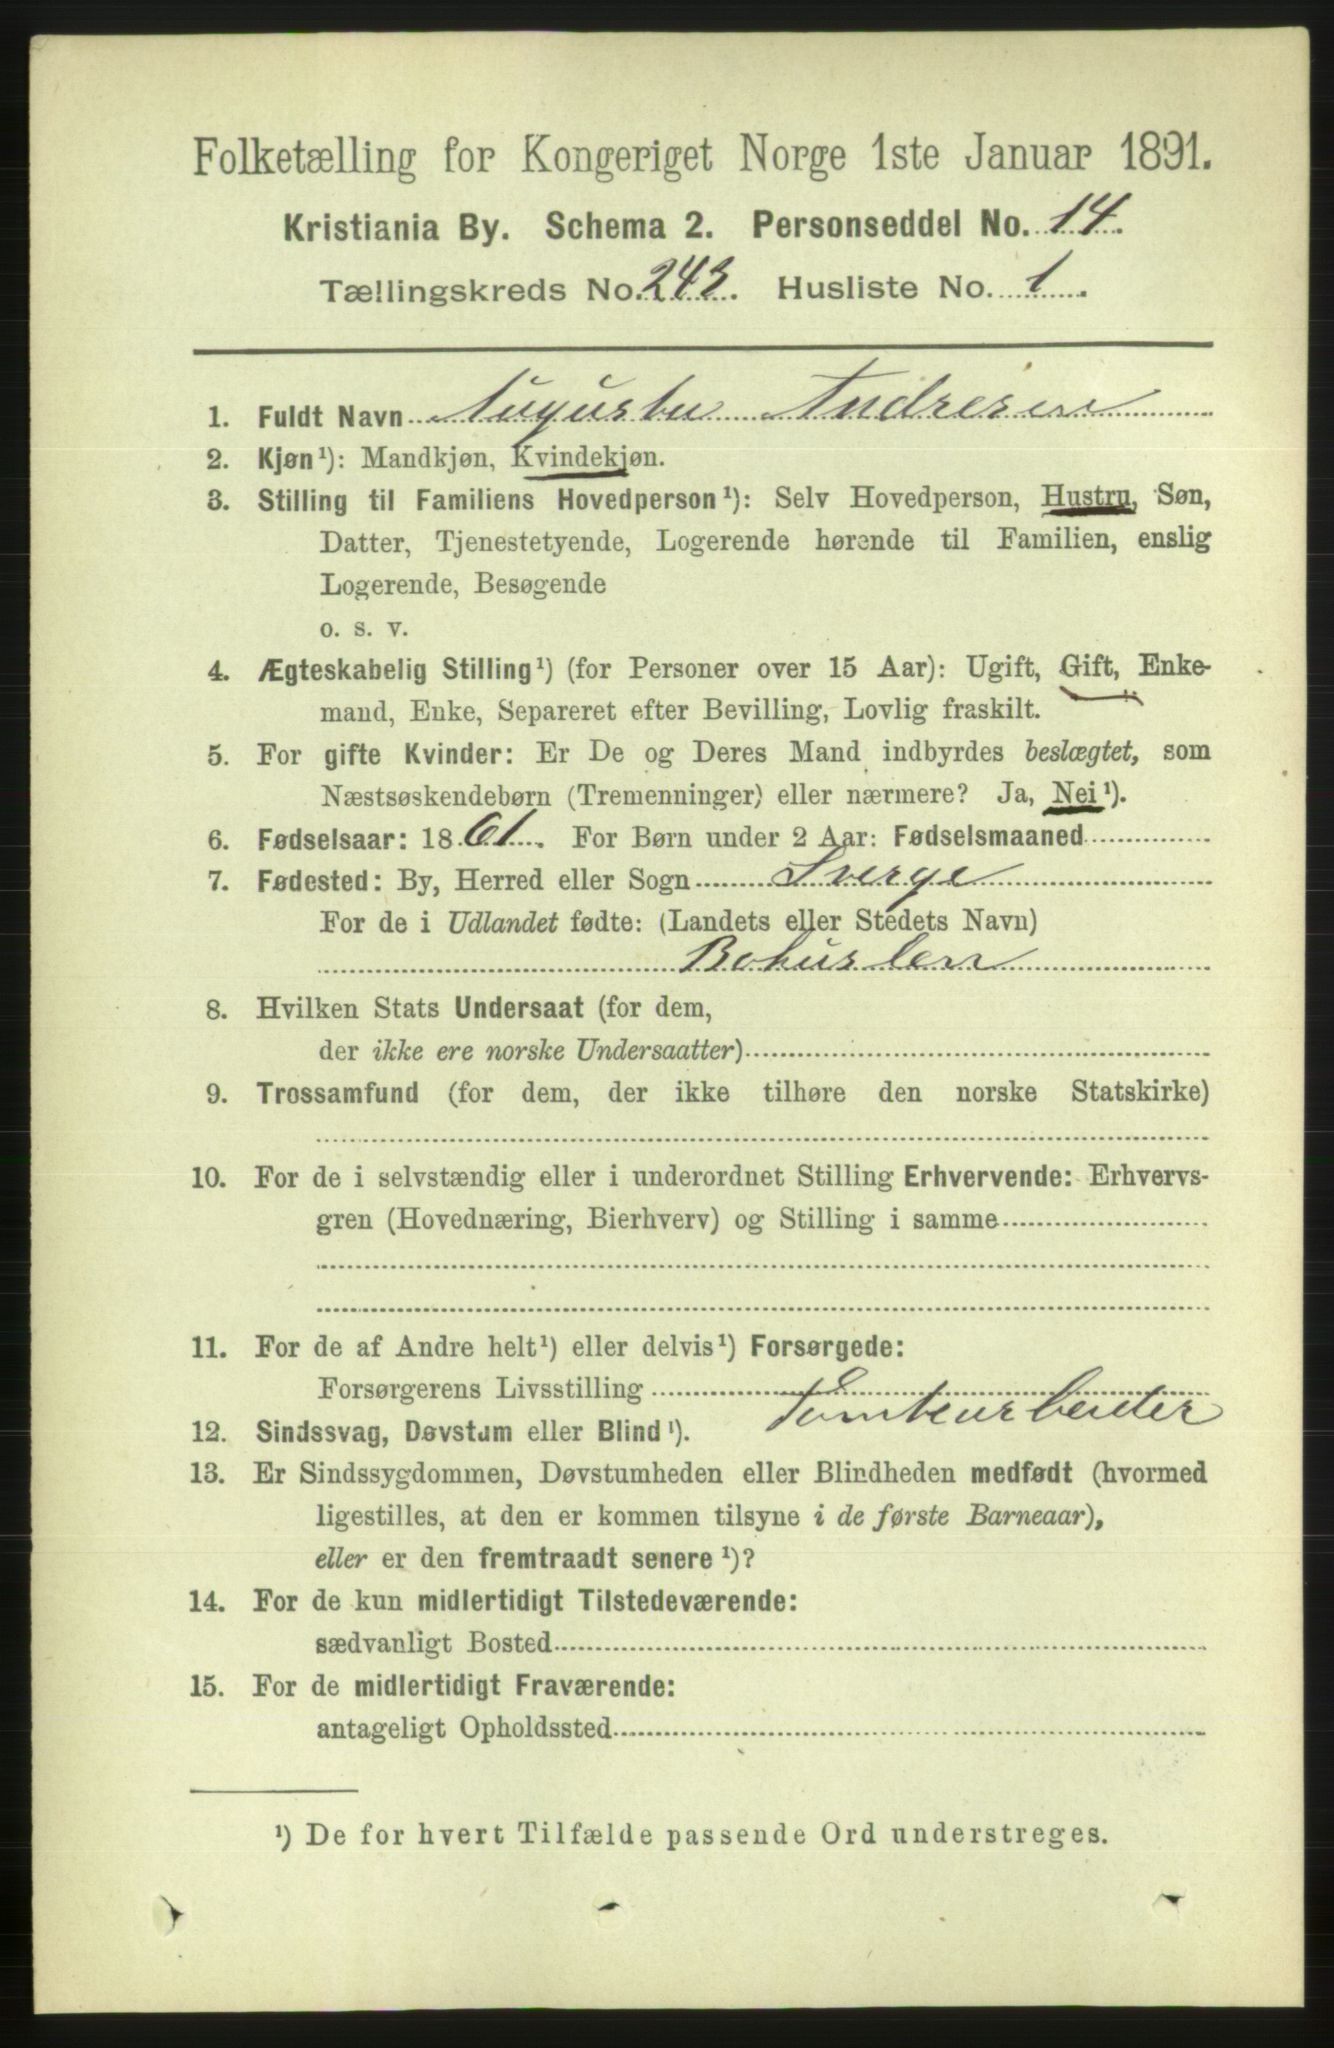 Folketælling for Kongeriget Norge 1ste Januar 1891.
Kristiania By. Schema 2. Personseddel No. 14.
Tællingskreds No. 243. Husliste No. 1.
1. Fuldt Navn Augusta Andresen
2. Kjøn¹): Mandkjøn, Kvindekjøn.
3. Stilling til Familiens Hovedperson¹): Selv Hovedperson, Hustru, Søn,
Datter, Tjenestetyende, Logerende hørende til Familien, enslig
Logerende, Besøgende
o. s. v.
4. Ægteskabelig Stilling¹) (for Personer over 15 Aar): Ugift, Gift, Enke-
mand, Enke, Separeret efter Bevilling, Lovlig fraskilt.
5. For gifte Kvinder: Er De og Deres Mand indbyrdes beslægtet, som
Næstsøskendebørn (Tremenninger) eller nærmere? Ja, Nei¹).
6. Fødselsaar: 1861. For Børn under 2 Aar: Fødselsmaaned
7. Fødested: By, Herred eller Sogn Sverge
For de i Udlandet fødte: (Landets eller Stedets Navn)
Bohuslen
8. Hvilken Stats Undersaat (for dem,
der ikke ere norske Undersaatter)
9. Trossamfund (for dem, der ikke tilhøre den norske Statskirke)
10. For de i selvstændig eller i underordnet Stilling Erhvervende: Erhvervs-
gren (Hovednæring, Bierhverv) og Stilling i samme
11. For de af Andre helt¹) eller delvis¹) Forsørgede:
Forsørgerens Livsstilling Tomtearbeider
12. Sindssvag, Døvstum eller Blind¹).
13. Er Sindssygdommen, Døvstumheden eller Blindheden medfødt (hvormed
ligestilles, at den er kommen tilsyne i de første Barneaar),
eller er den fremtraadt senere¹)?
14. For de kun midlertidigt Tilstedeværende:
sædvanligt Bosted
15. For de midlertidigt Fraværende:
antageligt Opholdssted
¹) De for hvert Tilfælde passende Ord understreges.